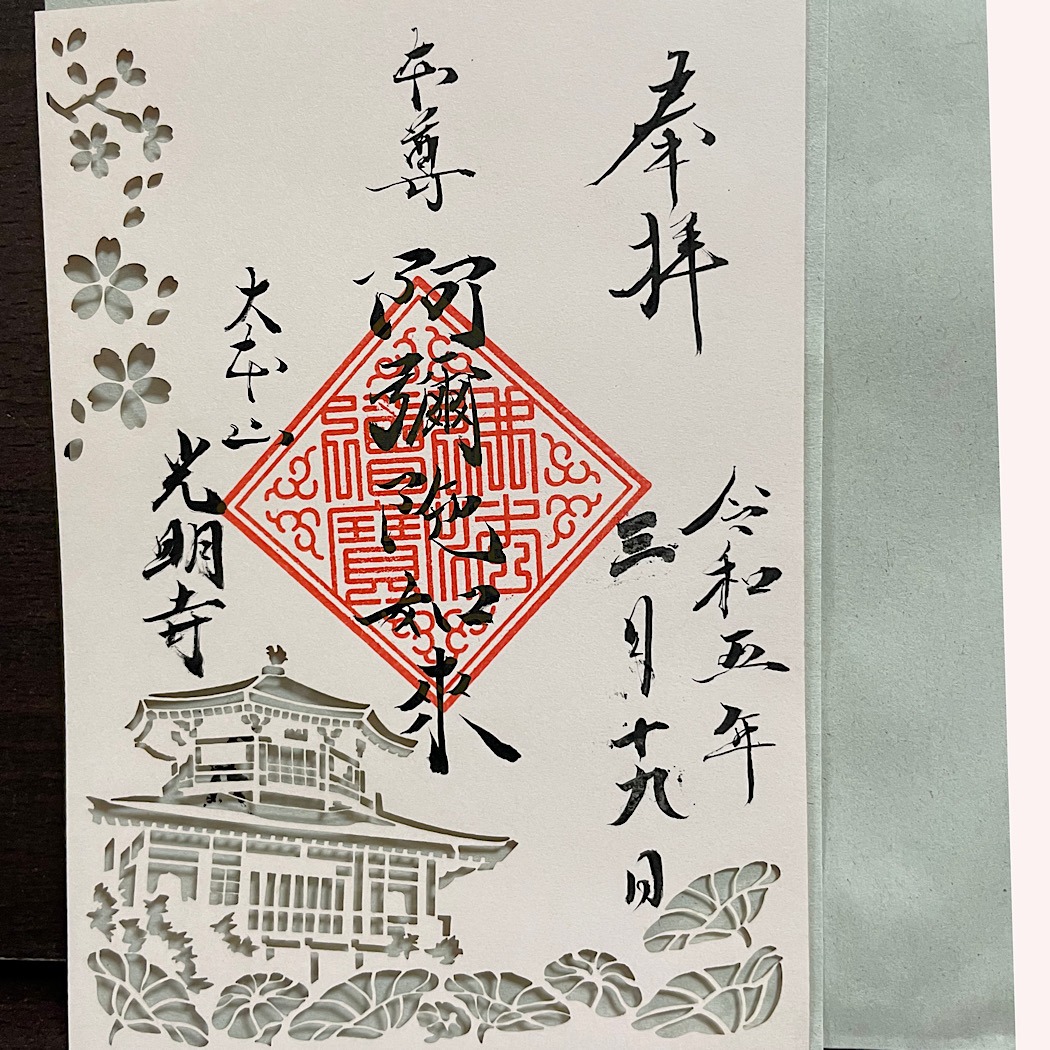 奉拝
令和五年
三月十九日
本尊
阿彌陀如来
佛法僧寶
大本山
光明寺